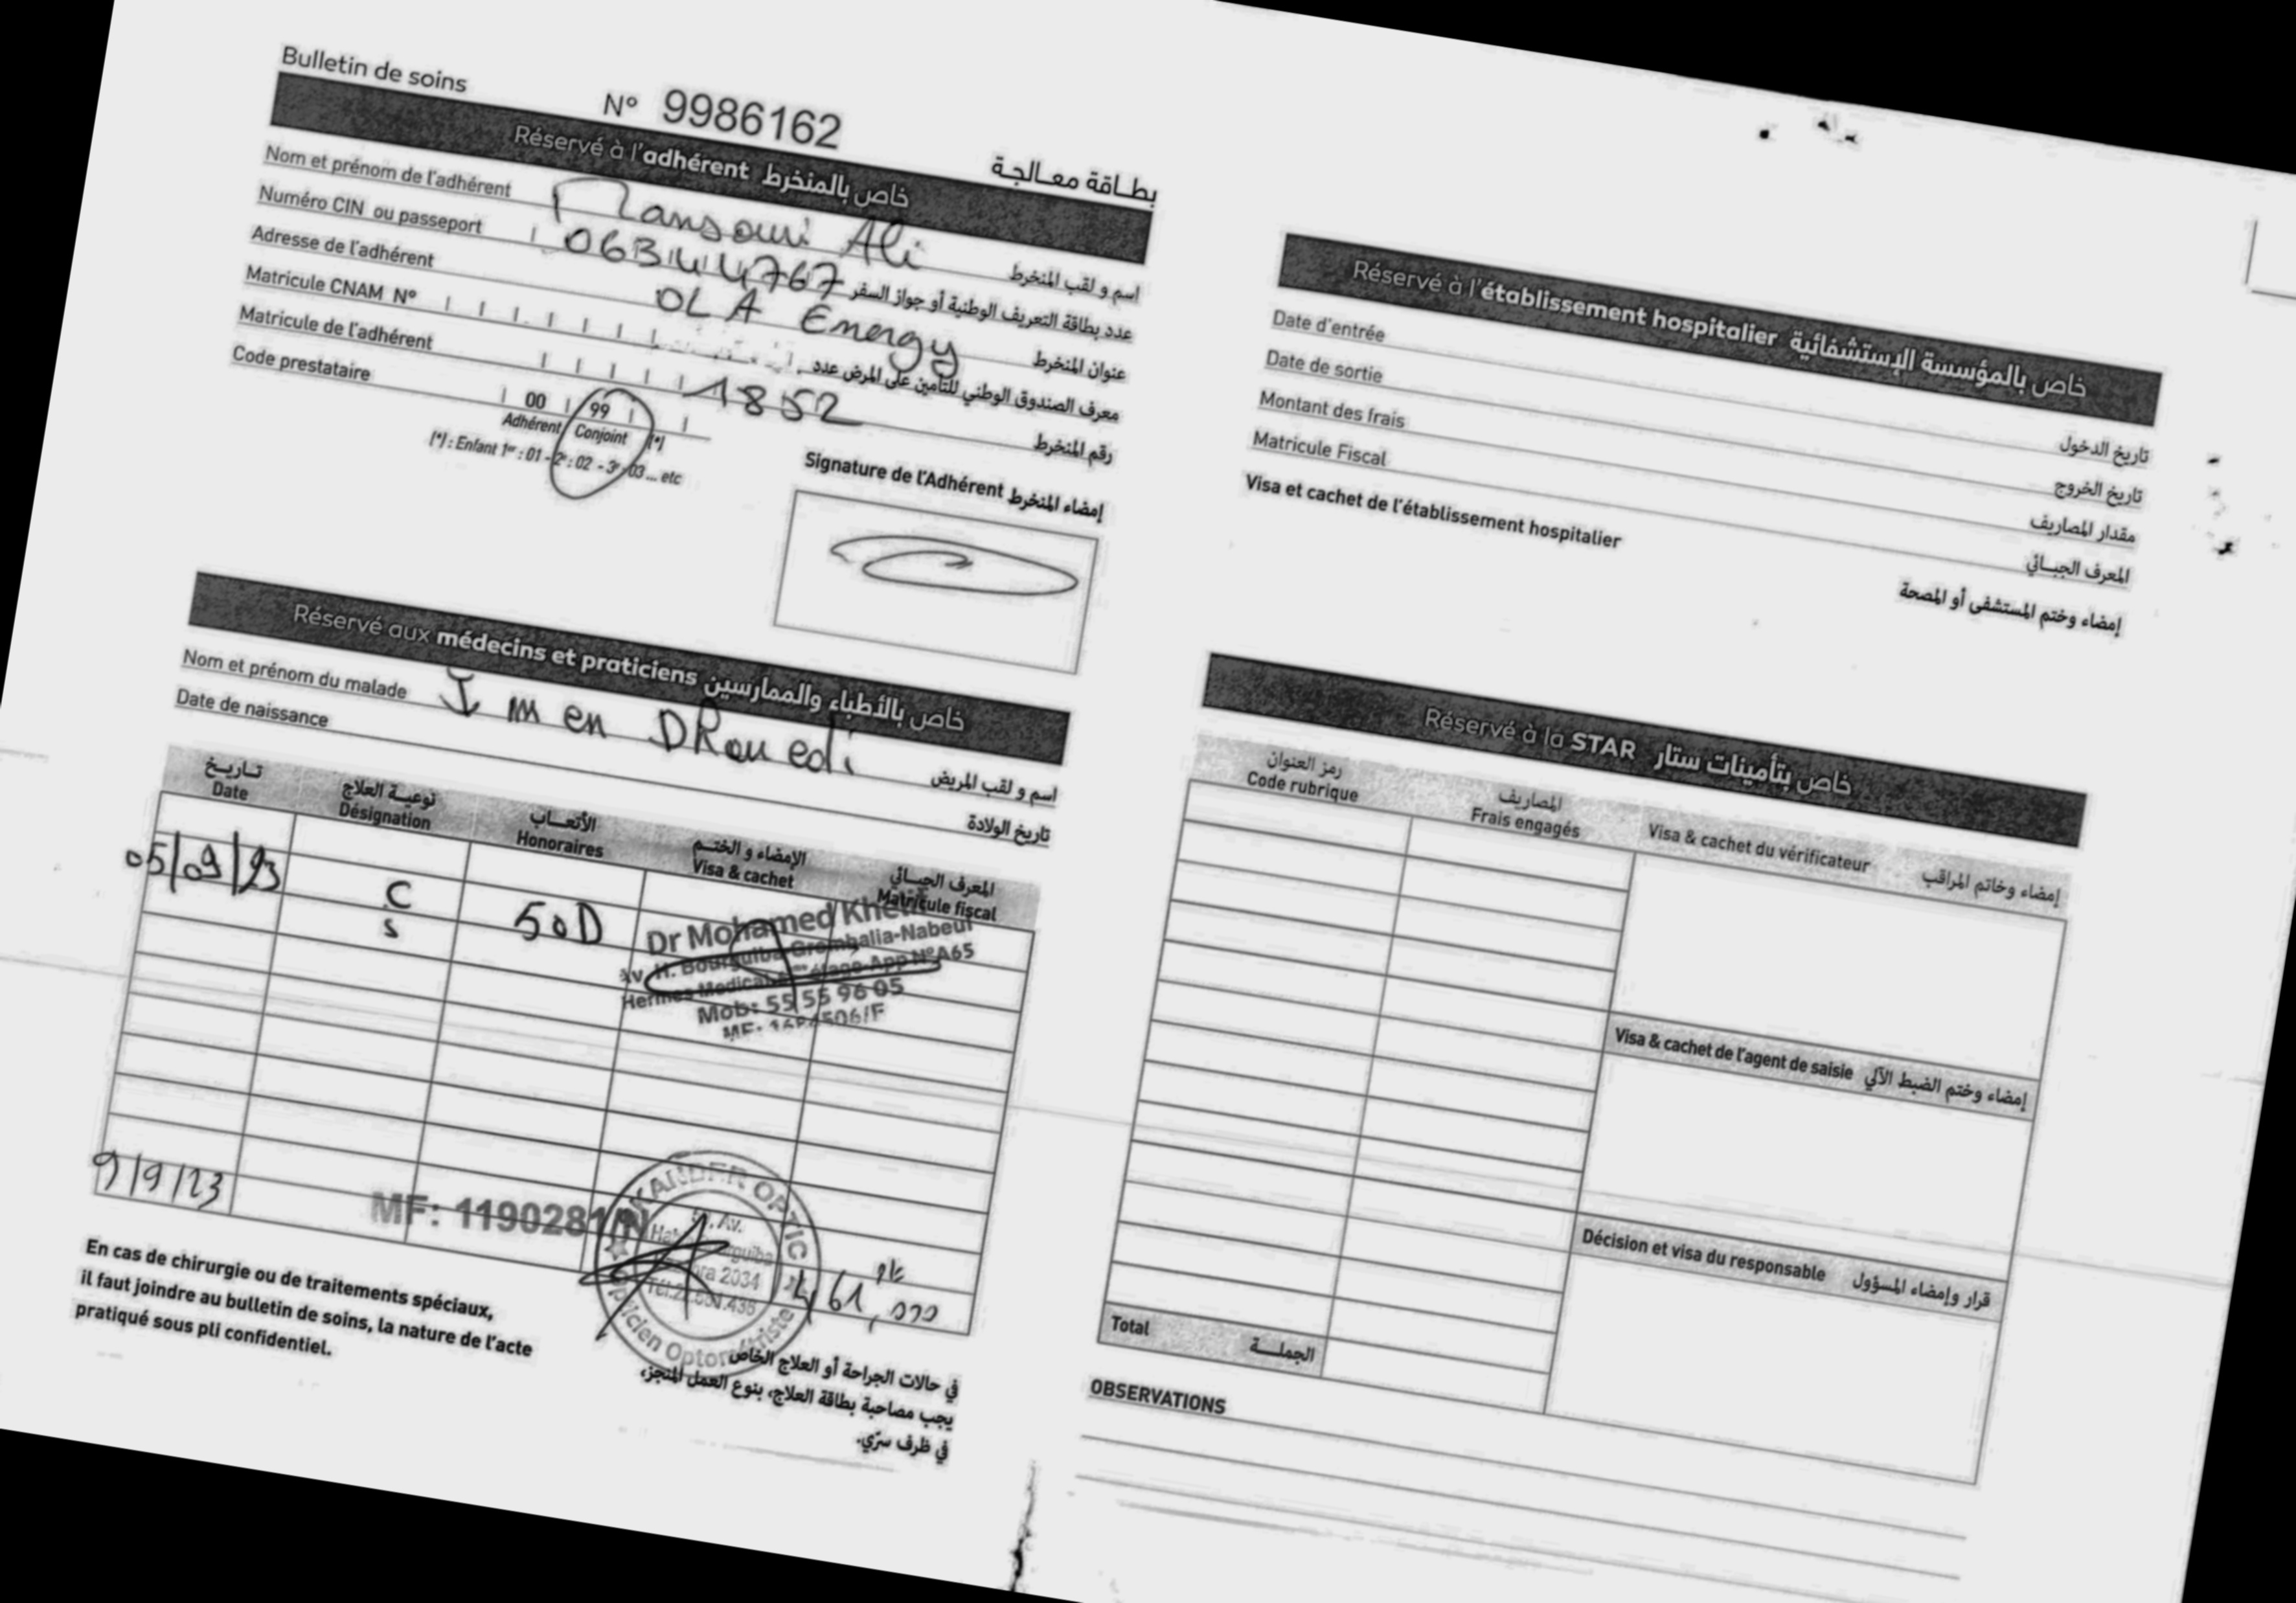 Bulletin de soins
N° 9986162
بطـاقة معـالجـة
Réservé à l'adhérent خاص بالمنخرط
Nom et prénom de l'adhérent Mansouri Ali اسم و لقب المنخرط
Numéro CIN ou passeport 06344767 عدد بطاقة التعريف الوطنية أو جواز السفر
Adresse de l'adhérent OLA Energy عنوان المنخرط
Matricule CNAM N° معرف الصندوق الوطني للتأمين على المرض عدد
Matricule de l'adhérent 1852 رقم المنخرط
Code prestataire 00 99
Adhérent Conjoint (*)
(*) : Enfant 1er : 01 - 2e : 02 - 3e : 03 ... etc
Signature de l'Adhérent إمضاء المنخرط
Réservé aux médecins et praticiens خاص بالأطباء والممارسين
Nom et prénom du malade Imen DRouedi اسم و لقب المريض
Date de naissance تاريخ الولادة
تـاريـخ نوعيـة العلاج الأتعـاب الإمضاء و الختـم المعرف الجبـائي
Date Désignation Honoraires Visa & cachet Matricule fiscal
05/09/23 C 50D
s
Dr Mohamed
Av. H. Bourguiba Grombalia-Nabeul
Hermes Medical App N°A65
Mob: 55 55 96 05
9/9/23
MF: 1190281/N
OPTIC
Av.
2034
Opticien Optométriste
461,000
En cas de chirurgie ou de traitements spéciaux,
il faut joindre au bulletin de soins, la nature de l'acte
pratiqué sous pli confidentiel.
في حالات الجراحة أو العلاج الخاص
يجب مصاحبة بطاقة العلاج، بنوع العمل المنجز،
في ظرف سرّي.
Réservé à l'établissement hospitalier خاص بالمؤسسة الإستشفائية
Date d'entrée تاريخ الدخول
Date de sortie تاريخ الخروج
Montant des frais مقدار المصاريف
Matricule Fiscal المعرف الجبـائي
Visa et cachet de l'établissement hospitalier إمضاء وختم المستشفى أو المصحة
Réservé à la STAR خاص بتأمينات ستار
رمز العنوان المصاريف
Code rubrique Frais engagés Visa & cachet du vérificateur إمضاء وخاتم المراقب
Visa & cachet de l'agent de saisie إمضاء وختم الضبط الآلي
Décision et visa du responsable قرار وإمضاء المسؤول
Total الجملـــة
OBSERVATIONS